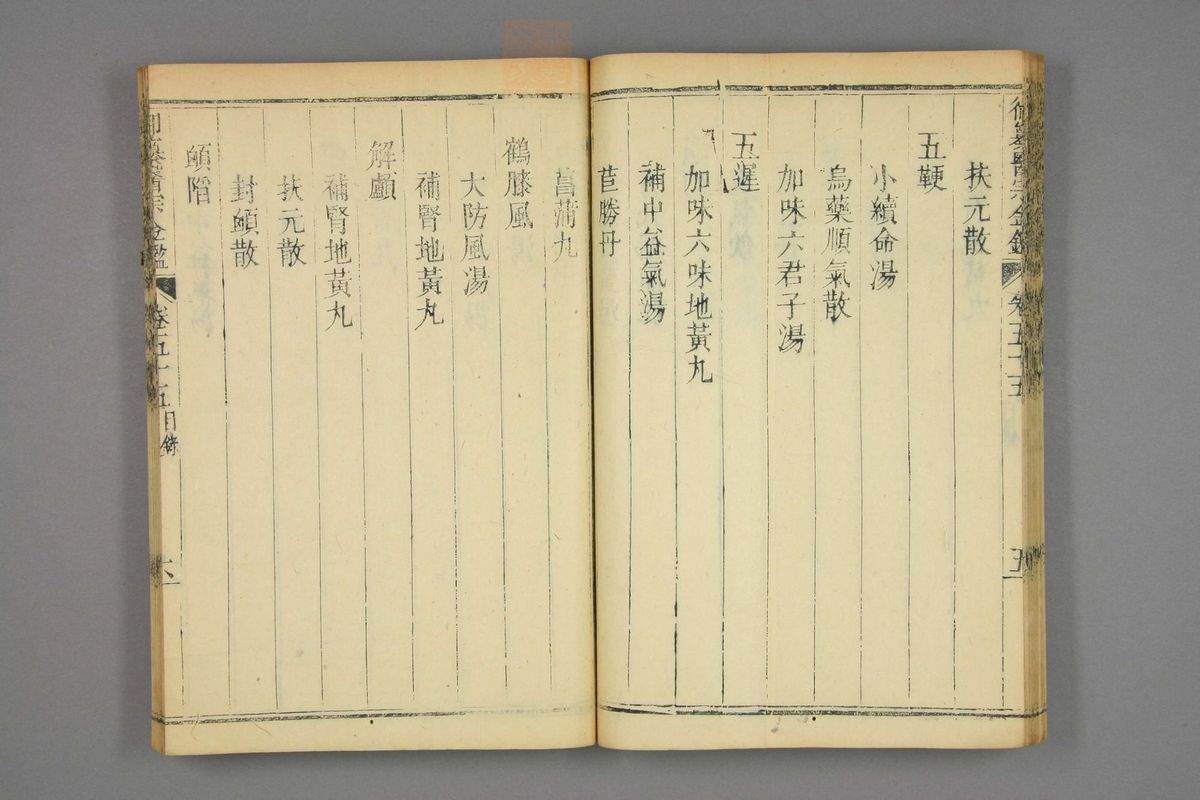 御纂醫宗金鑑 卷五十五 五
扶元散
五鞕
小續命湯
烏藥順氣散
加味六君子湯
五遲
加味六味地黃丸
補中益氣湯
苣勝丹
菖蒲丸
鶴膝風
大防風湯
補腎地黃丸
解顱
補腎地黃丸
扶元散
封顖散
顖陷
御纂醫宗金鑑 卷五十五目錄 六